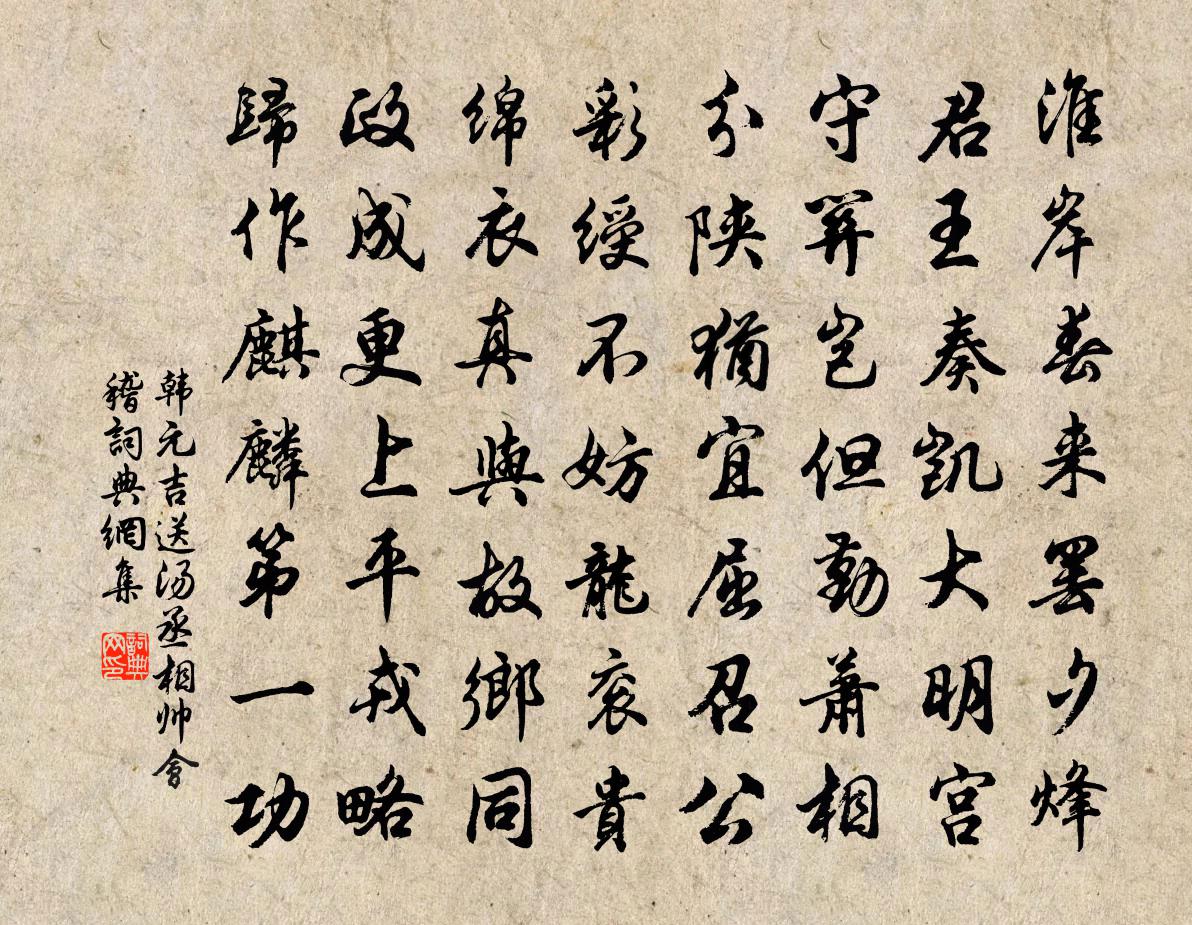 淮岸春来罢夕烽
君王奏凯大明宫
守關岂但勤萧相
分陕猶宜屈召公
彩绶不妨龍衮貴
绵衣真與故鄉同
政成更上平戎略
歸作麒麟第一功
韩元吉送汤丞相帅會
稽詞典網集
詞典
网印